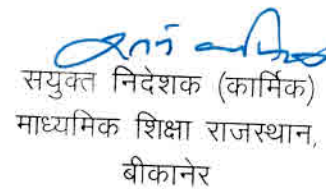 सयुक्त निदेशक (कार्मिक)
माध्यमिक शिक्षा राजस्थान,
बीकानेर